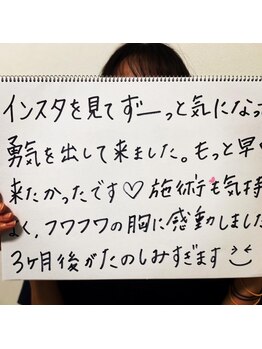 インスタを見てずーっと気になっ
勇気を出して来ました。もっと早
来たかったです♡施術も気持
よく、フワフワの胸に感動しました
3ヶ月後がたのしみすぎます